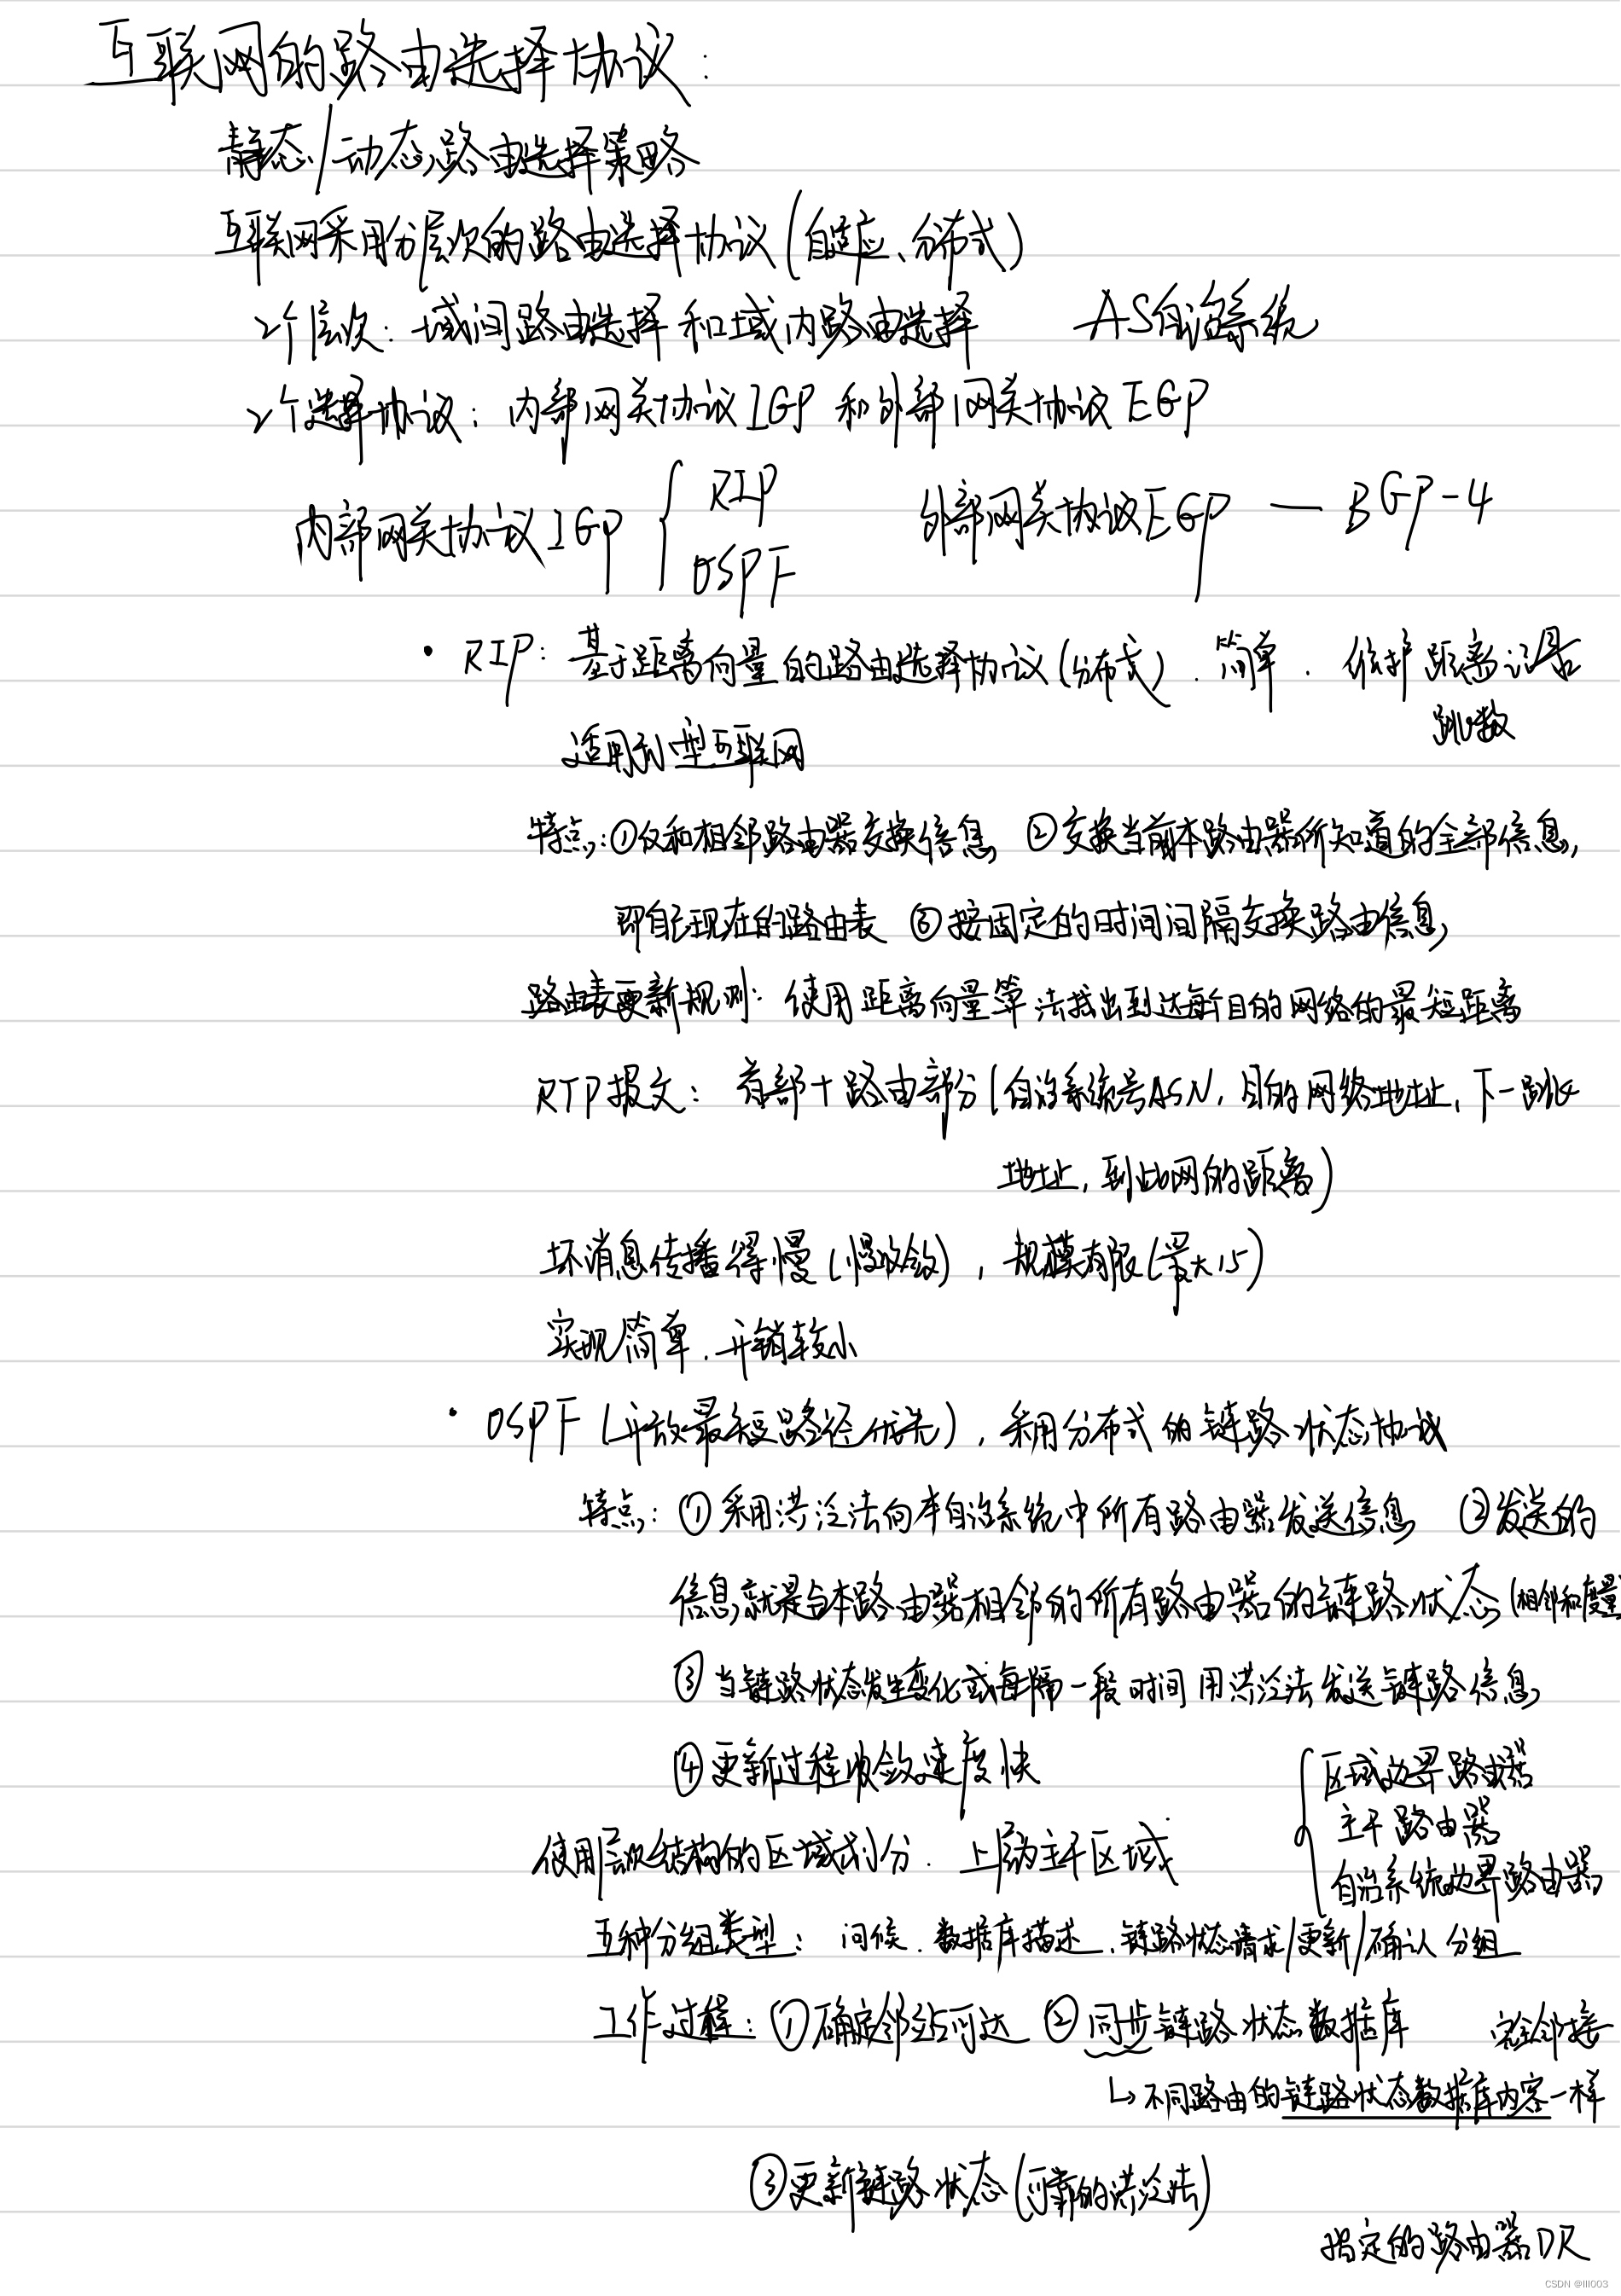 互联网的路由选择协议：
静态/动态路由选择策略
互联网采用分层次的路由选择协议(自适应、分布式)
2个层次：域间路由选择和域内路由选择 AS自治系统
2个选择协议：内部网关协议IGP和外部网关协议EGP
内部网关协议IGP { RIP
OSPF
外部网关协议EGP — BGP-4
· RIP：基于距离向量的路由选择协议(分布式). 简单. 维护距离记录
跳数
适用小型互联网
特点：①仅和相邻路由器交换信息 ②交换当前本路由器所知道的全部信息，
即自己现在的路由表 ③按固定的时间间隔交换路由信息
路由表更新规则：使用距离向量算法找出到达每个目的网络的最短距离
RIP报文：首部+路由部分(自治系统号ASN, 目的网络地址, 下一跳
地址, 到此网的距离)
坏消息传播得慢(慢收敛), 规模有限(最大15)
实现简单. 开销较小
· OSPF(开放最短路径优先), 采用分布式的链路状态协议
特点：①采用洪泛法向本自治系统中所有路由器发送信息 ②发送的
信息就是与本路由器相邻的所有路由器的链路状态(相邻和度量)
③当链路状态发生变化或每隔一段时间用洪泛法发送链路信息
④更新过程收敛速度快
{ 区域边界路由器
主干路由器
自治系统边界路由器
使用层次结构的区域划分. 上层为主干区域
五种分组类型：问候. 数据库描述. 链路状态请求/更新/确认分组
工作过程：①确定邻站可达 ②同步链路状态数据库 完全邻接
↳不同路由的链路状态数据库内容一样
③更新链路状态(可靠的洪泛法)
指定的路由器DR
CSDN @lll003